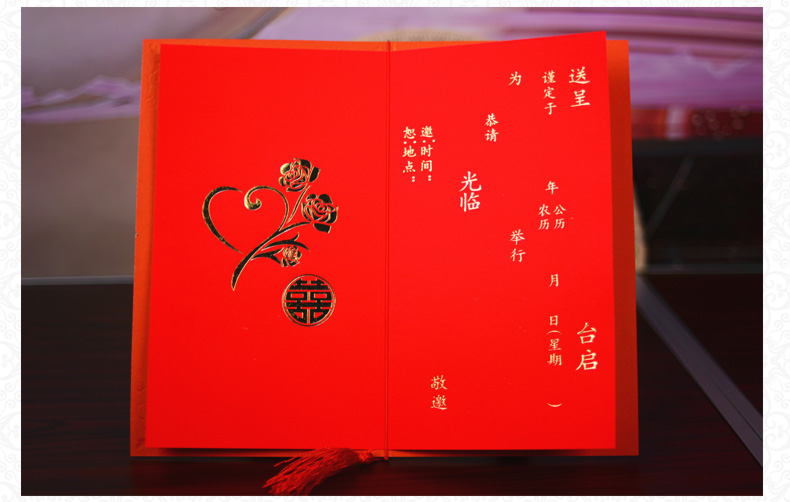 送呈 台启
谨定于 年 公历 农历 月 日(星期 )
为 举行
恭请
光临
敬邀
邀:时间:
恕:地点:
囍